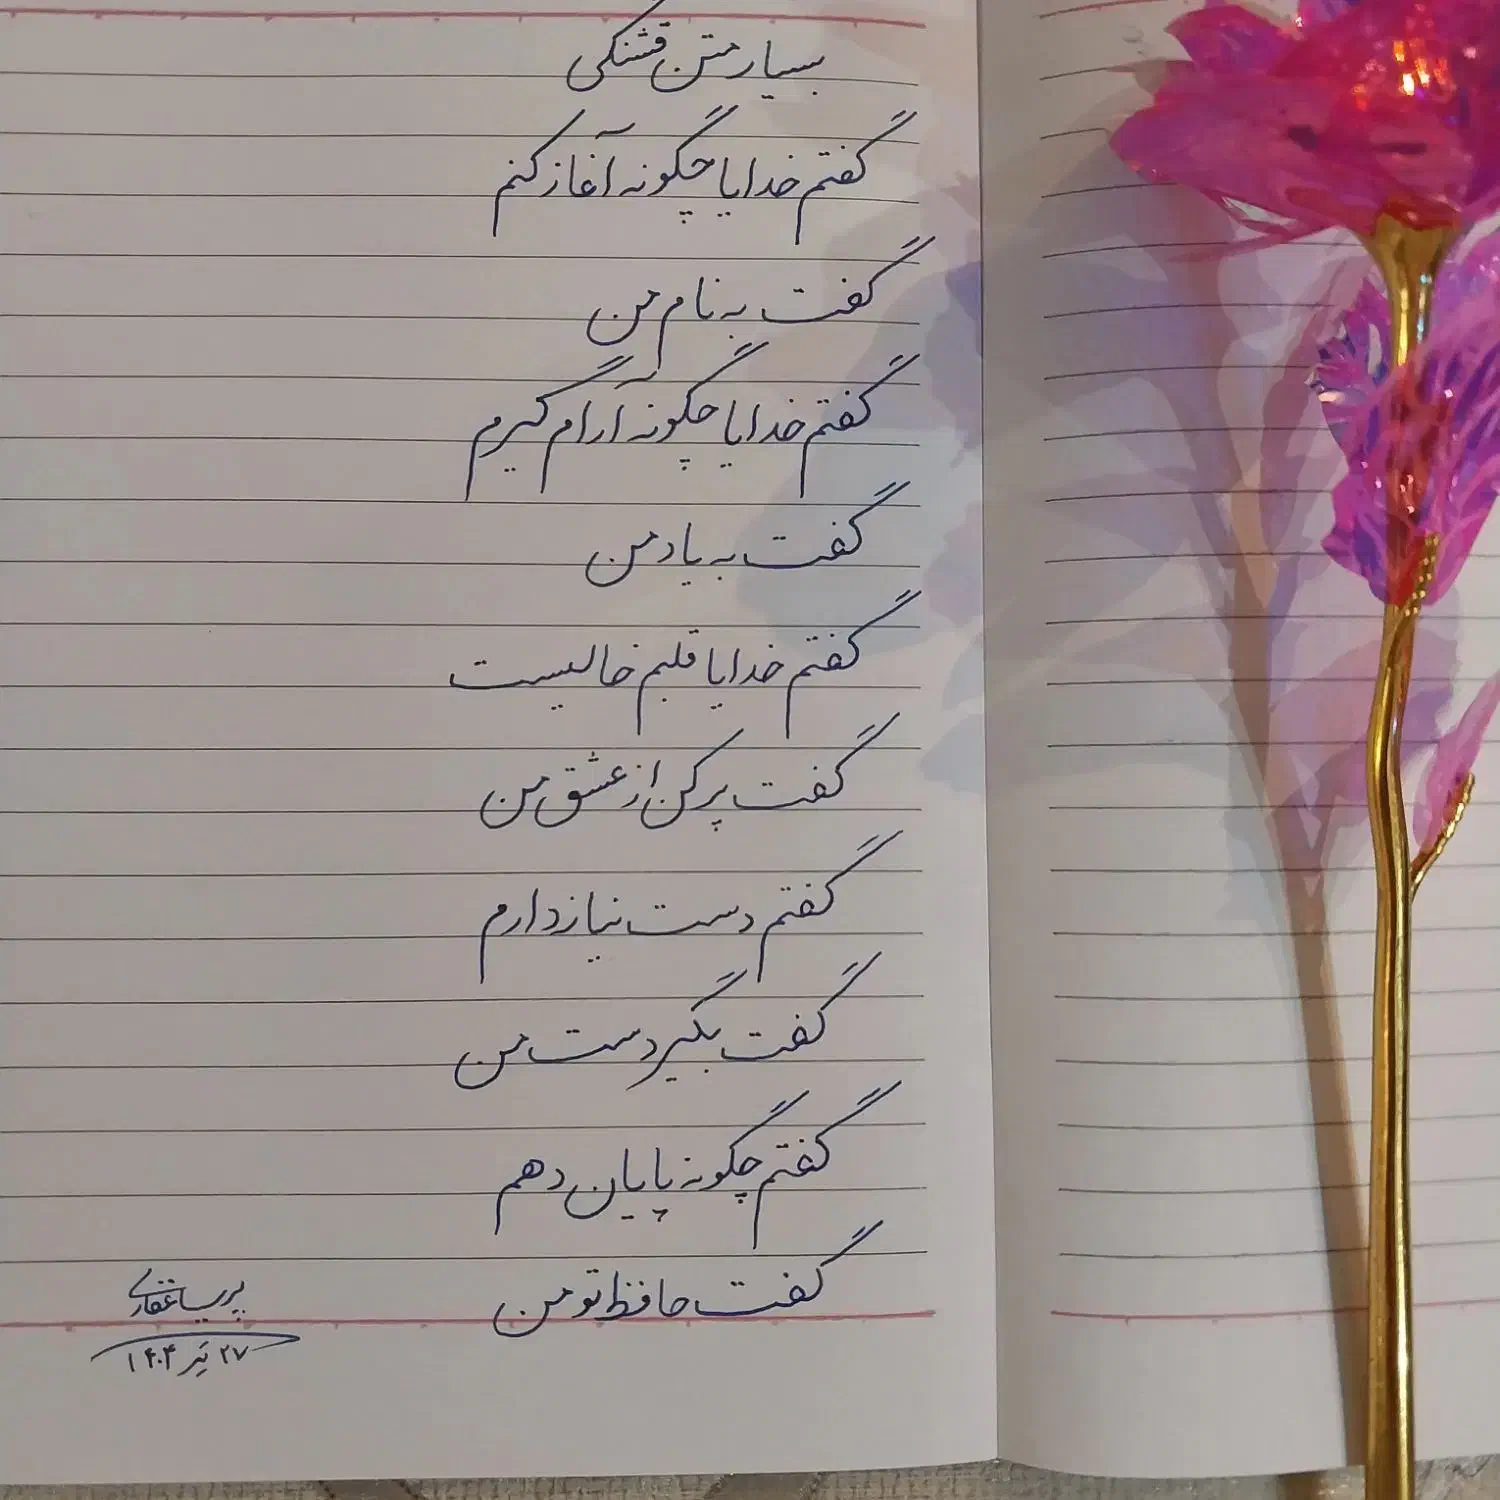 بسیار متن قشنگی
گفتم خدایا چگونه آغاز کنم
گفت به نام من
گفتم خدایا چگونه آرام گیرم
گفت به یاد من
گفتم خدایا قلبم خالیست
گفت پر کن از عشق من
گفتم دست نیاز دارم
گفت بگیر دست من
گفتم چگونه پایان دهم
گفت حافظ تو من
پریسا غفاری
۲۷ تیر ۱۴۰۴